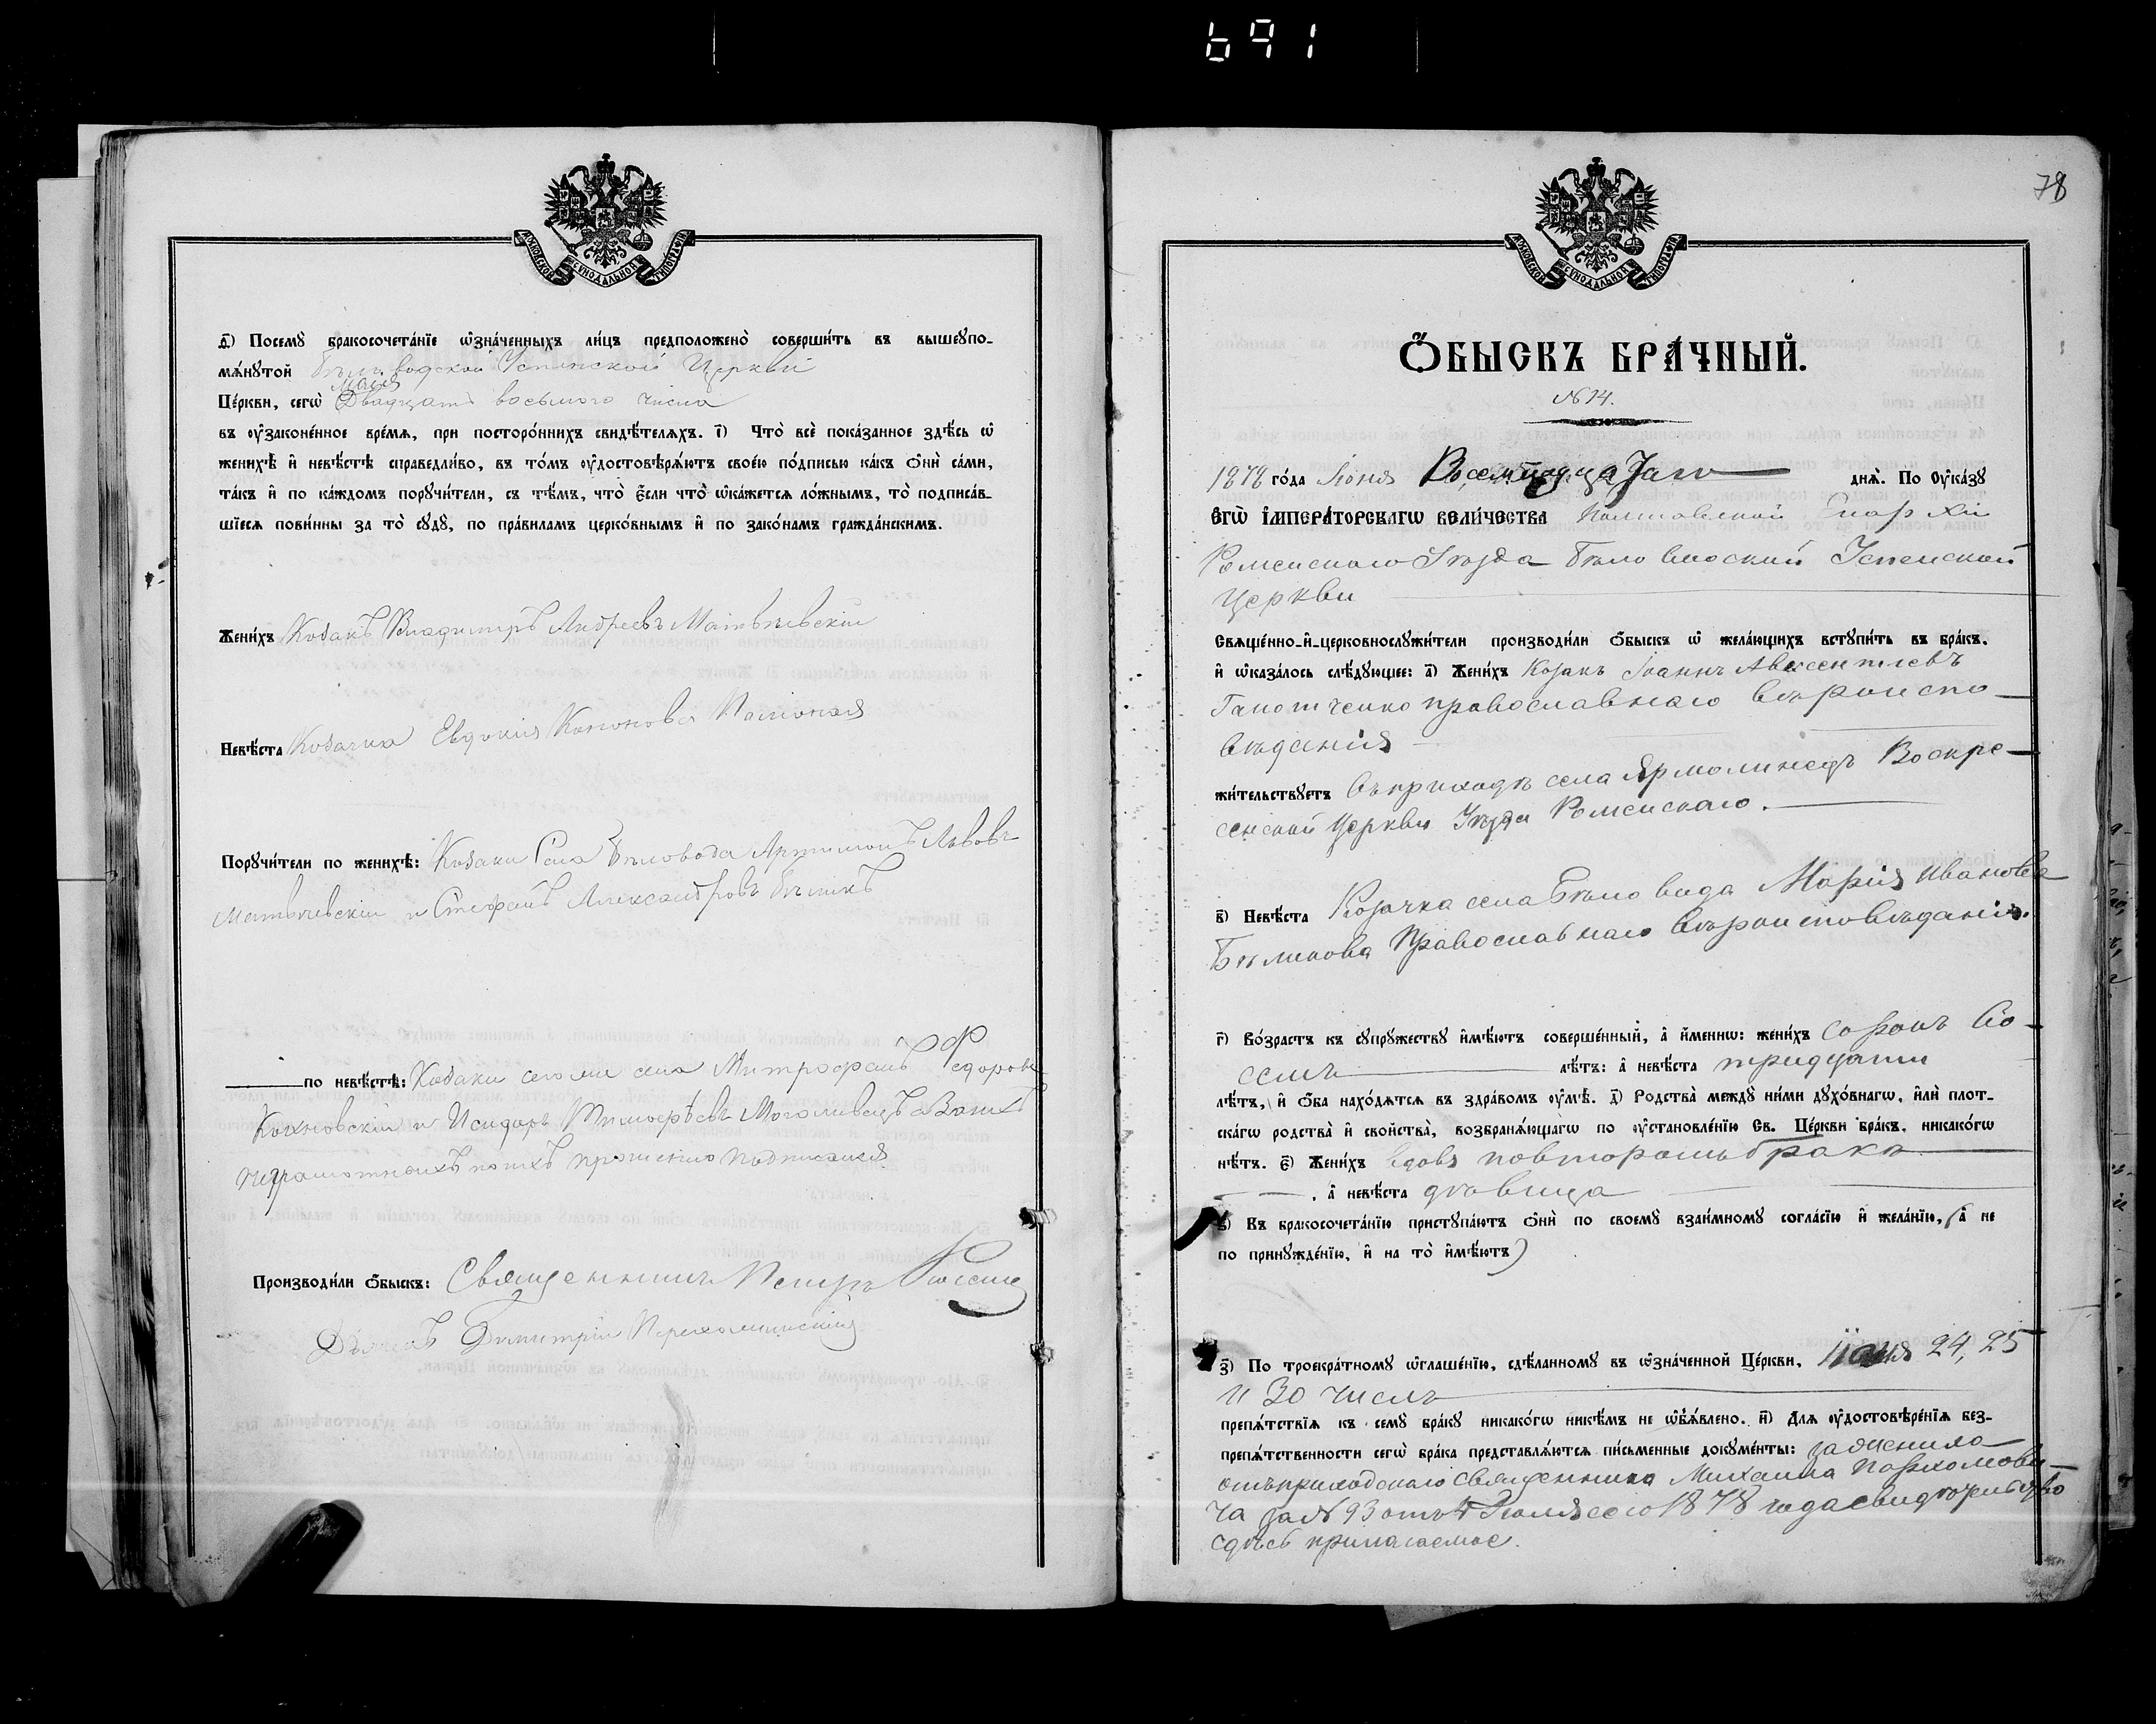 691
МОСКОВСКОЙ СѴНОДАЛЬНОЙ ТИПОГРАФІИ
д҃) Посемꙋ̀ бракосочета́нїе ѡ҆зна́ченныхъ ли́цъ предположено̀ соверши́ть въ вышеꙋпо-
мѧ́нꙋтой Бѣловодской Успенской Церкви
Мая
Це́ркви, сегѡ̀ Двадцать восьмого числа
въ ᲂу҆зако́ненное вре́мѧ, при посторо́ннихъ свидѣ́телѧхъ. і҃) Что̀ всѐ пока́занное здѣ́сь ѡ҆
женихѣ̀ и҆ невѣ́стѣ справедли́во, въ то́мъ ᲂу҆достовѣрѧ́ютъ свое́ю по́дписью ка́къ ѻ҆нѝ са́ми,
та́къ и҆ по ка́ждомъ порꙋчи́тели, съ тѣ́мъ, что̀ є҆́сли что̀ ѡ҆ка́жетсѧ ло́жнымъ, то̀ подписа́в-
шїесѧ пови́нны за то̀ сꙋдꙋ̀, по пра́виламъ церко́внымъ и҆ по зако́намъ гражда́нскимъ.
Жени́хъ Козакъ Владимиръ Андреевъ Матвѣевскій
Невѣ́ста Козачка Евдокія Кононова
Порꙋчи́тели по женихѣ̀: Козаки Села Бѣловода Артимонъ Львовъ
и Стефанъ Александровъ Бѣликъ
по невѣ́стѣ: Козаки того же села Митрофанъ Федоровъ
и Исидоръ Тимофѣевъ
неграмотныхъ по ихъ прошенію подписался
Производи́ли ѻ҆́быскъ: Священникъ Петръ
Дьячокъ Димитрій
78
МОСКОВСКОЙ СѴНОДАЛЬНОЙ ТИПОГРАФІИ
Ѻ҆́БЫСКЪ БРА́ЧНЫЙ.
№ 14.
1878 го́да Іюня Восемнадцатаго днѧ̀. По ᲂу҆ка́зꙋ
Є҆ГѠ̀ І҆МПЕРА́ТОРСКАГѠ ВЕЛИ́ЧЕСТВА Полтавской Епархіи
Роменскаго Уѣзда Бѣловодской Успенской
Церкви
Свѧще́нно-и҆-церковнослꙋжи́тели производи́ли ѻ҆́быскъ ѡ҆ жела́ющихъ встꙋпи́ть въ бра́къ,
и҆ ѡ҆каза́лось слѣ́дꙋющее: а҃) Жени́хъ Козакъ Іоаннъ Авксентіевъ
православнаго вѣроиспо-
вѣданія
жи́тельствꙋетъ въ приходѣ села Ярмолинецъ Воскре-
сенской Церкви Уѣзда Роменскаго.
в҃) Невѣ́ста Козачка села Бѣловода Марія Иванова
Бѣликова Православнаго вѣроисповѣданія.
г҃) Во́зрастъ къ сꙋпрꙋ́жествꙋ и҆мѣ́ютъ соверше́нный, а҆ и҆́меннѡ: жени́хъ сорокъ во-
семь лѣ́тъ: а҆ невѣ́ста тридцати
лѣ́тъ, и҆ ѻ҆́ба нахо́дѧтсѧ въ здра́вомъ ᲂу҆мѣ̀. д҃) Родства̀ междꙋ ни́ми дꙋхо́внагѡ, и҆лѝ плот-
ска́гѡ родства̀ и҆ сво́йства̀, возбранѧ́ющагѡ по ᲂу҆становле́нїю Св. Це́ркви бра́къ, никако́гѡ
нѣ́тъ. є҃) Жени́хъ вдовъ по второмъ бракѣ
, а҆ невѣ́ста дѣвица
ѕ҃) Въ бракосочета́нїю пристꙋпа́ютъ ѻ҆нѝ по своемꙋ̀ взаи́мномꙋ согла́сїю и҆ жела́нїю, (а҆ не
по принꙋжде́нїю, и҆ на то̀ и҆мѣ́ютъ)
з҃) По троекра́тномꙋ ѡ҆глаше́нїю, сдѣ́ланномꙋ въ ѡ҆зна́ченной Це́ркви, Іюня 24, 25
и 30 числъ
препѧ́тствїѧ къ семꙋ̀ бра́кꙋ никако́гѡ никѣ́мъ не ѡ҆б̾ѧ́влено. и҃) Длѧ ᲂу҆достовѣре́нїѧ без-
препѧ́тственности сегѡ̀ бра́ка представлѧ́ютсѧ пи́сьменные докꙋме́нты: жениха
отъ приходскаго священника Михаила Пархомови-
ча за № 93 отъ 4 Іюля сего 1878 года свидѣтельство
сдѣсь прилагаемое.